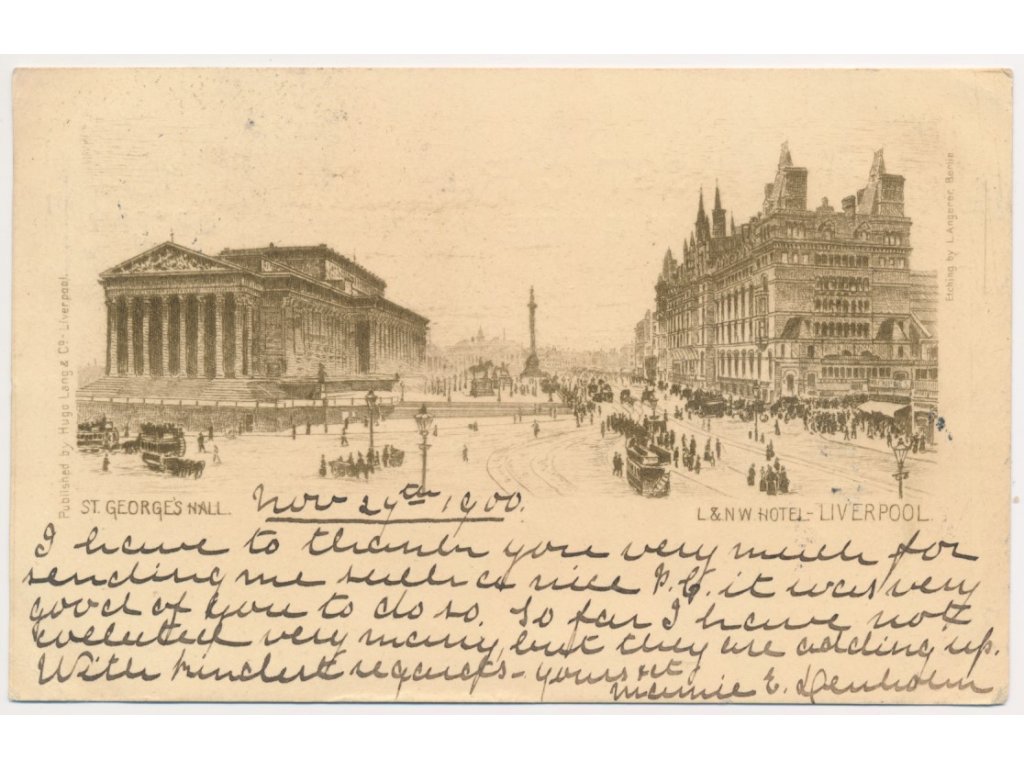 Published by Hugo Lang & Co. Liverpool.
Etching by L. Angerer, Berlin
ST. GEORGE'S HALL.
L & N W. HOTEL - LIVERPOOL.
Nov 29th 1900.
I have to thank you very much for
sending me such a nice P.C. it was very
good of you to do so. So far I have not
collected very many, but they are adding up.
With kindest regards - yours
Mamie E. Denholm